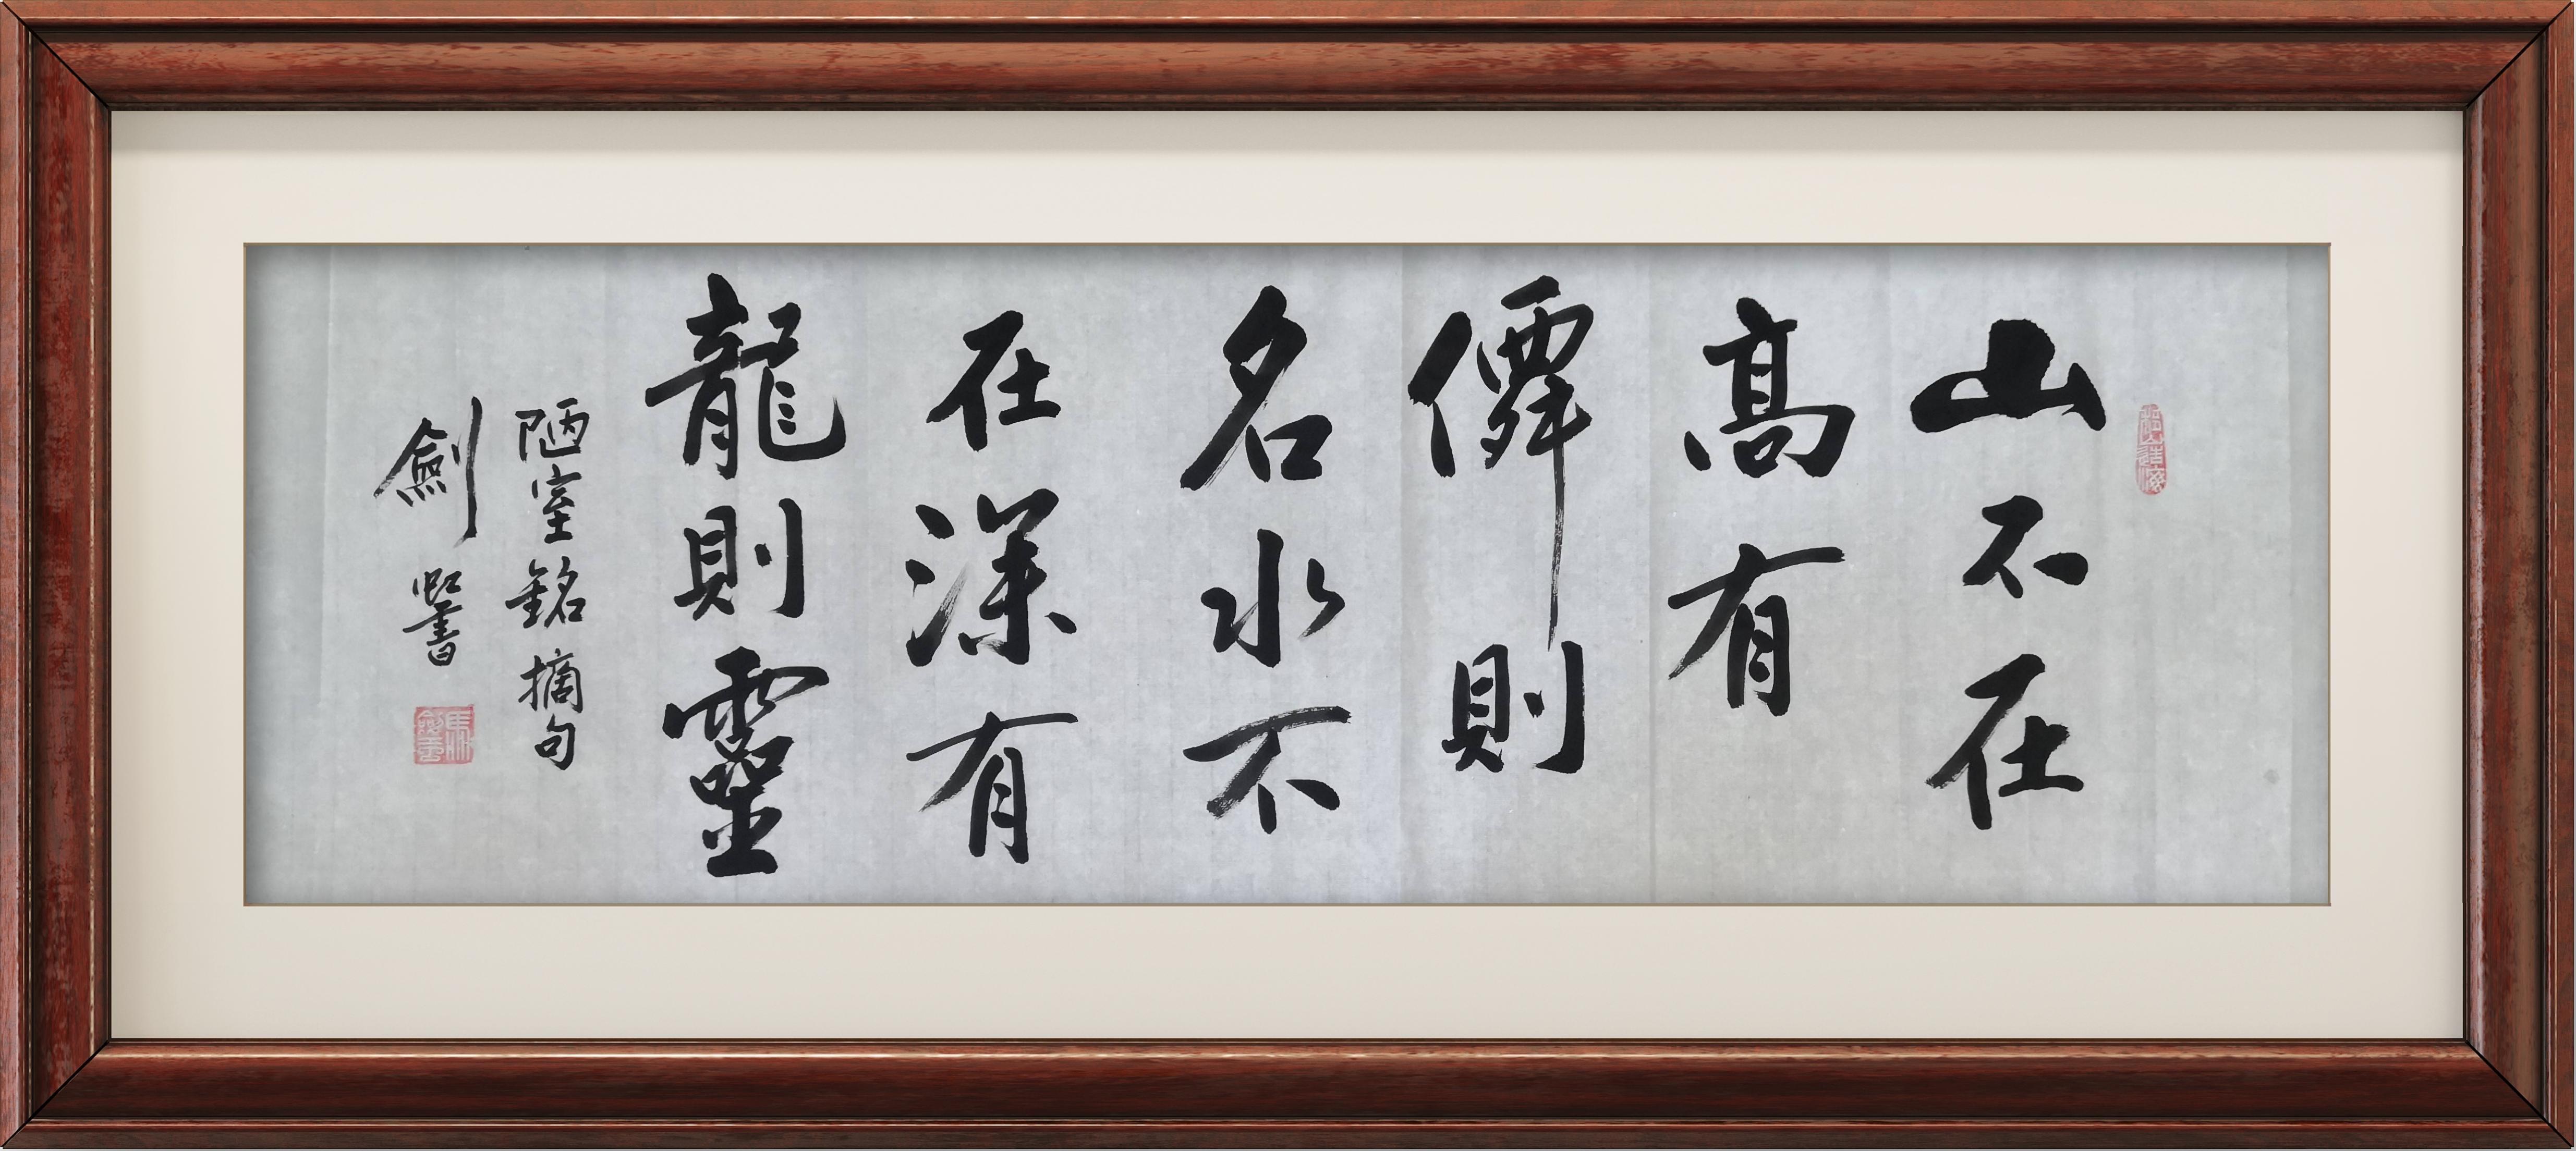 山不在
高有
僊則
名水不
在深有
龍則靈
陋室銘摘句
劍虹書